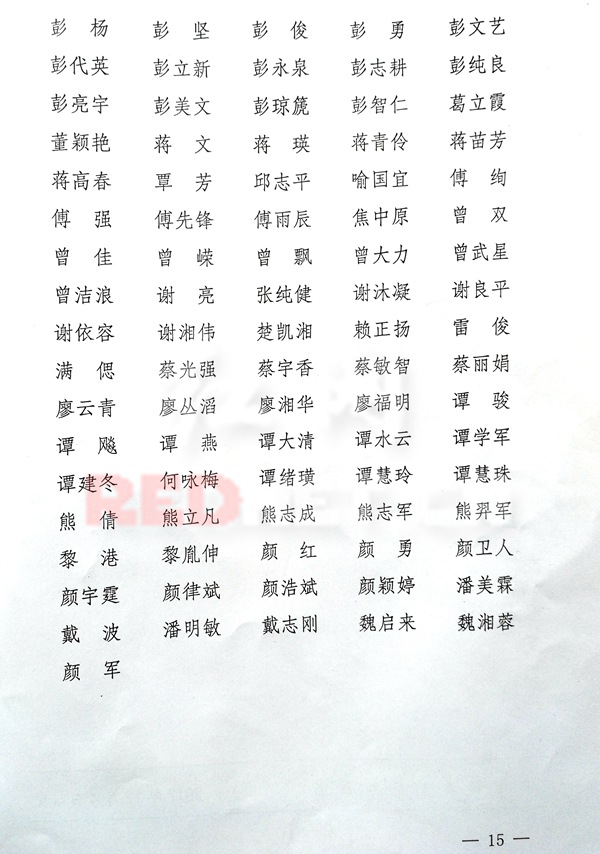 彭　杨　彭　坚　彭　俊　彭　勇　彭文艺
彭代英　彭立新　彭永泉　彭志耕　彭纯良
彭亮宇　彭美文　彭琼篪　彭智仁　葛立霞
董颖艳　蒋　文　蒋　瑛　蒋青伶　蒋苗芳
蒋高春　覃　芳　邱志平　喻国宜　傅　绚
傅　强　傅先锋　傅雨辰　焦中原　曾　双
曾　佳　曾　嵘　曾　飘　曾大力　曾武星
曾洁浪　谢　亮　张纯健　谢沐凝　谢良平
谢依容　谢湘伟　楚凯湘　赖正扬　雷　俊
满　偲　蔡光强　蔡宇香　蔡敏智　蔡丽娟
廖云青　廖丛滔　廖湘华　廖福明　谭　骏
谭　飚　谭　燕　谭大清　谭水云　谭学军
谭建冬　何咏梅　谭绪璜　谭慧玲　谭慧珠
熊　倩　熊立凡　熊志成　熊志军　熊羿军
黎　港　黎胤伸　颜　红　颜　勇　颜卫人
颜宇霆　颜律斌　颜浩斌　颜颖婷　潘美霖
戴　波　潘明敏　戴志刚　魏启来　魏湘蓉
颜　军
— 15 —